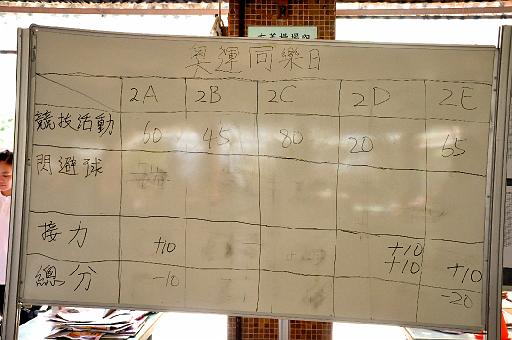 奧運同樂日
2A 2B 2C 2D 2E
競技活動 60 45 80 20 65
閃避球
接力 +10 +10 +10
+10
總分 -10 -20